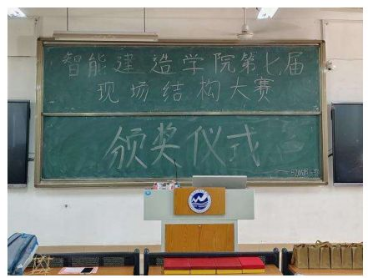 智能建造学院第七届
现场结构大赛
颁奖仪式